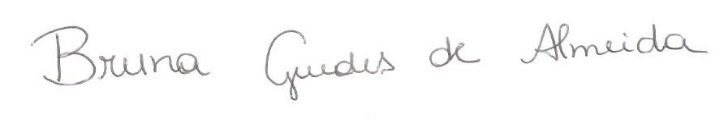 Bruna Guedes de Almeida